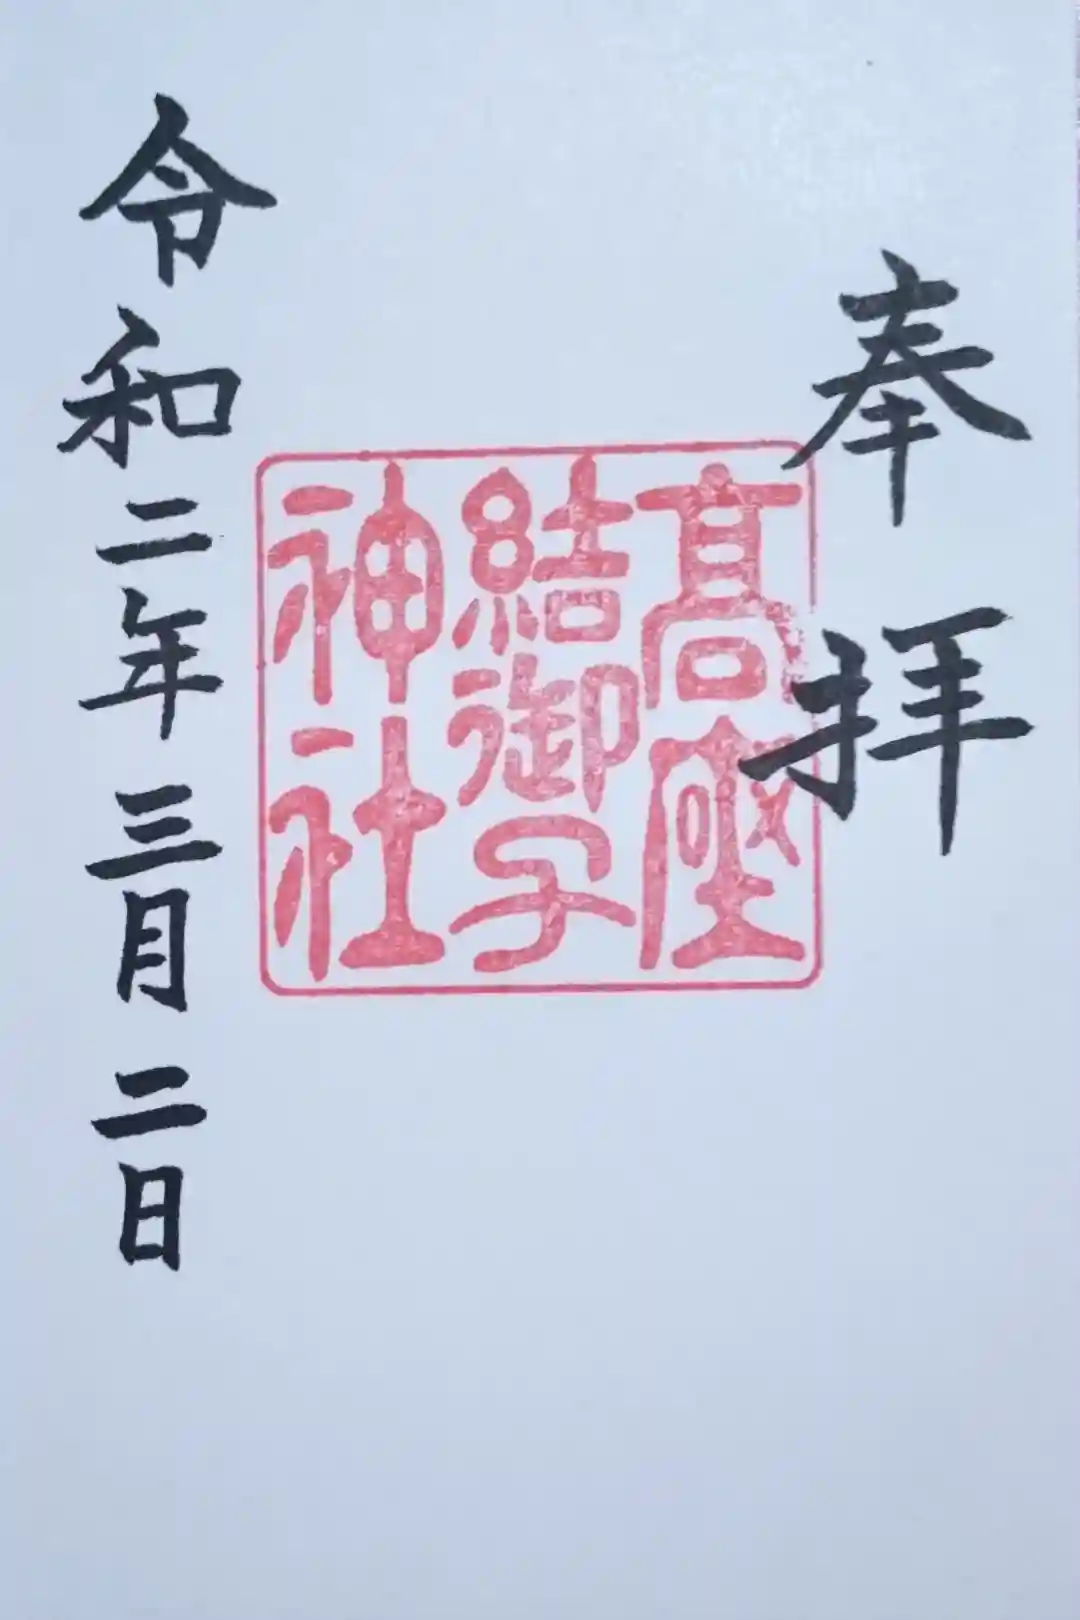 奉拝
髙座
結御子
神社
令和二年三月二日